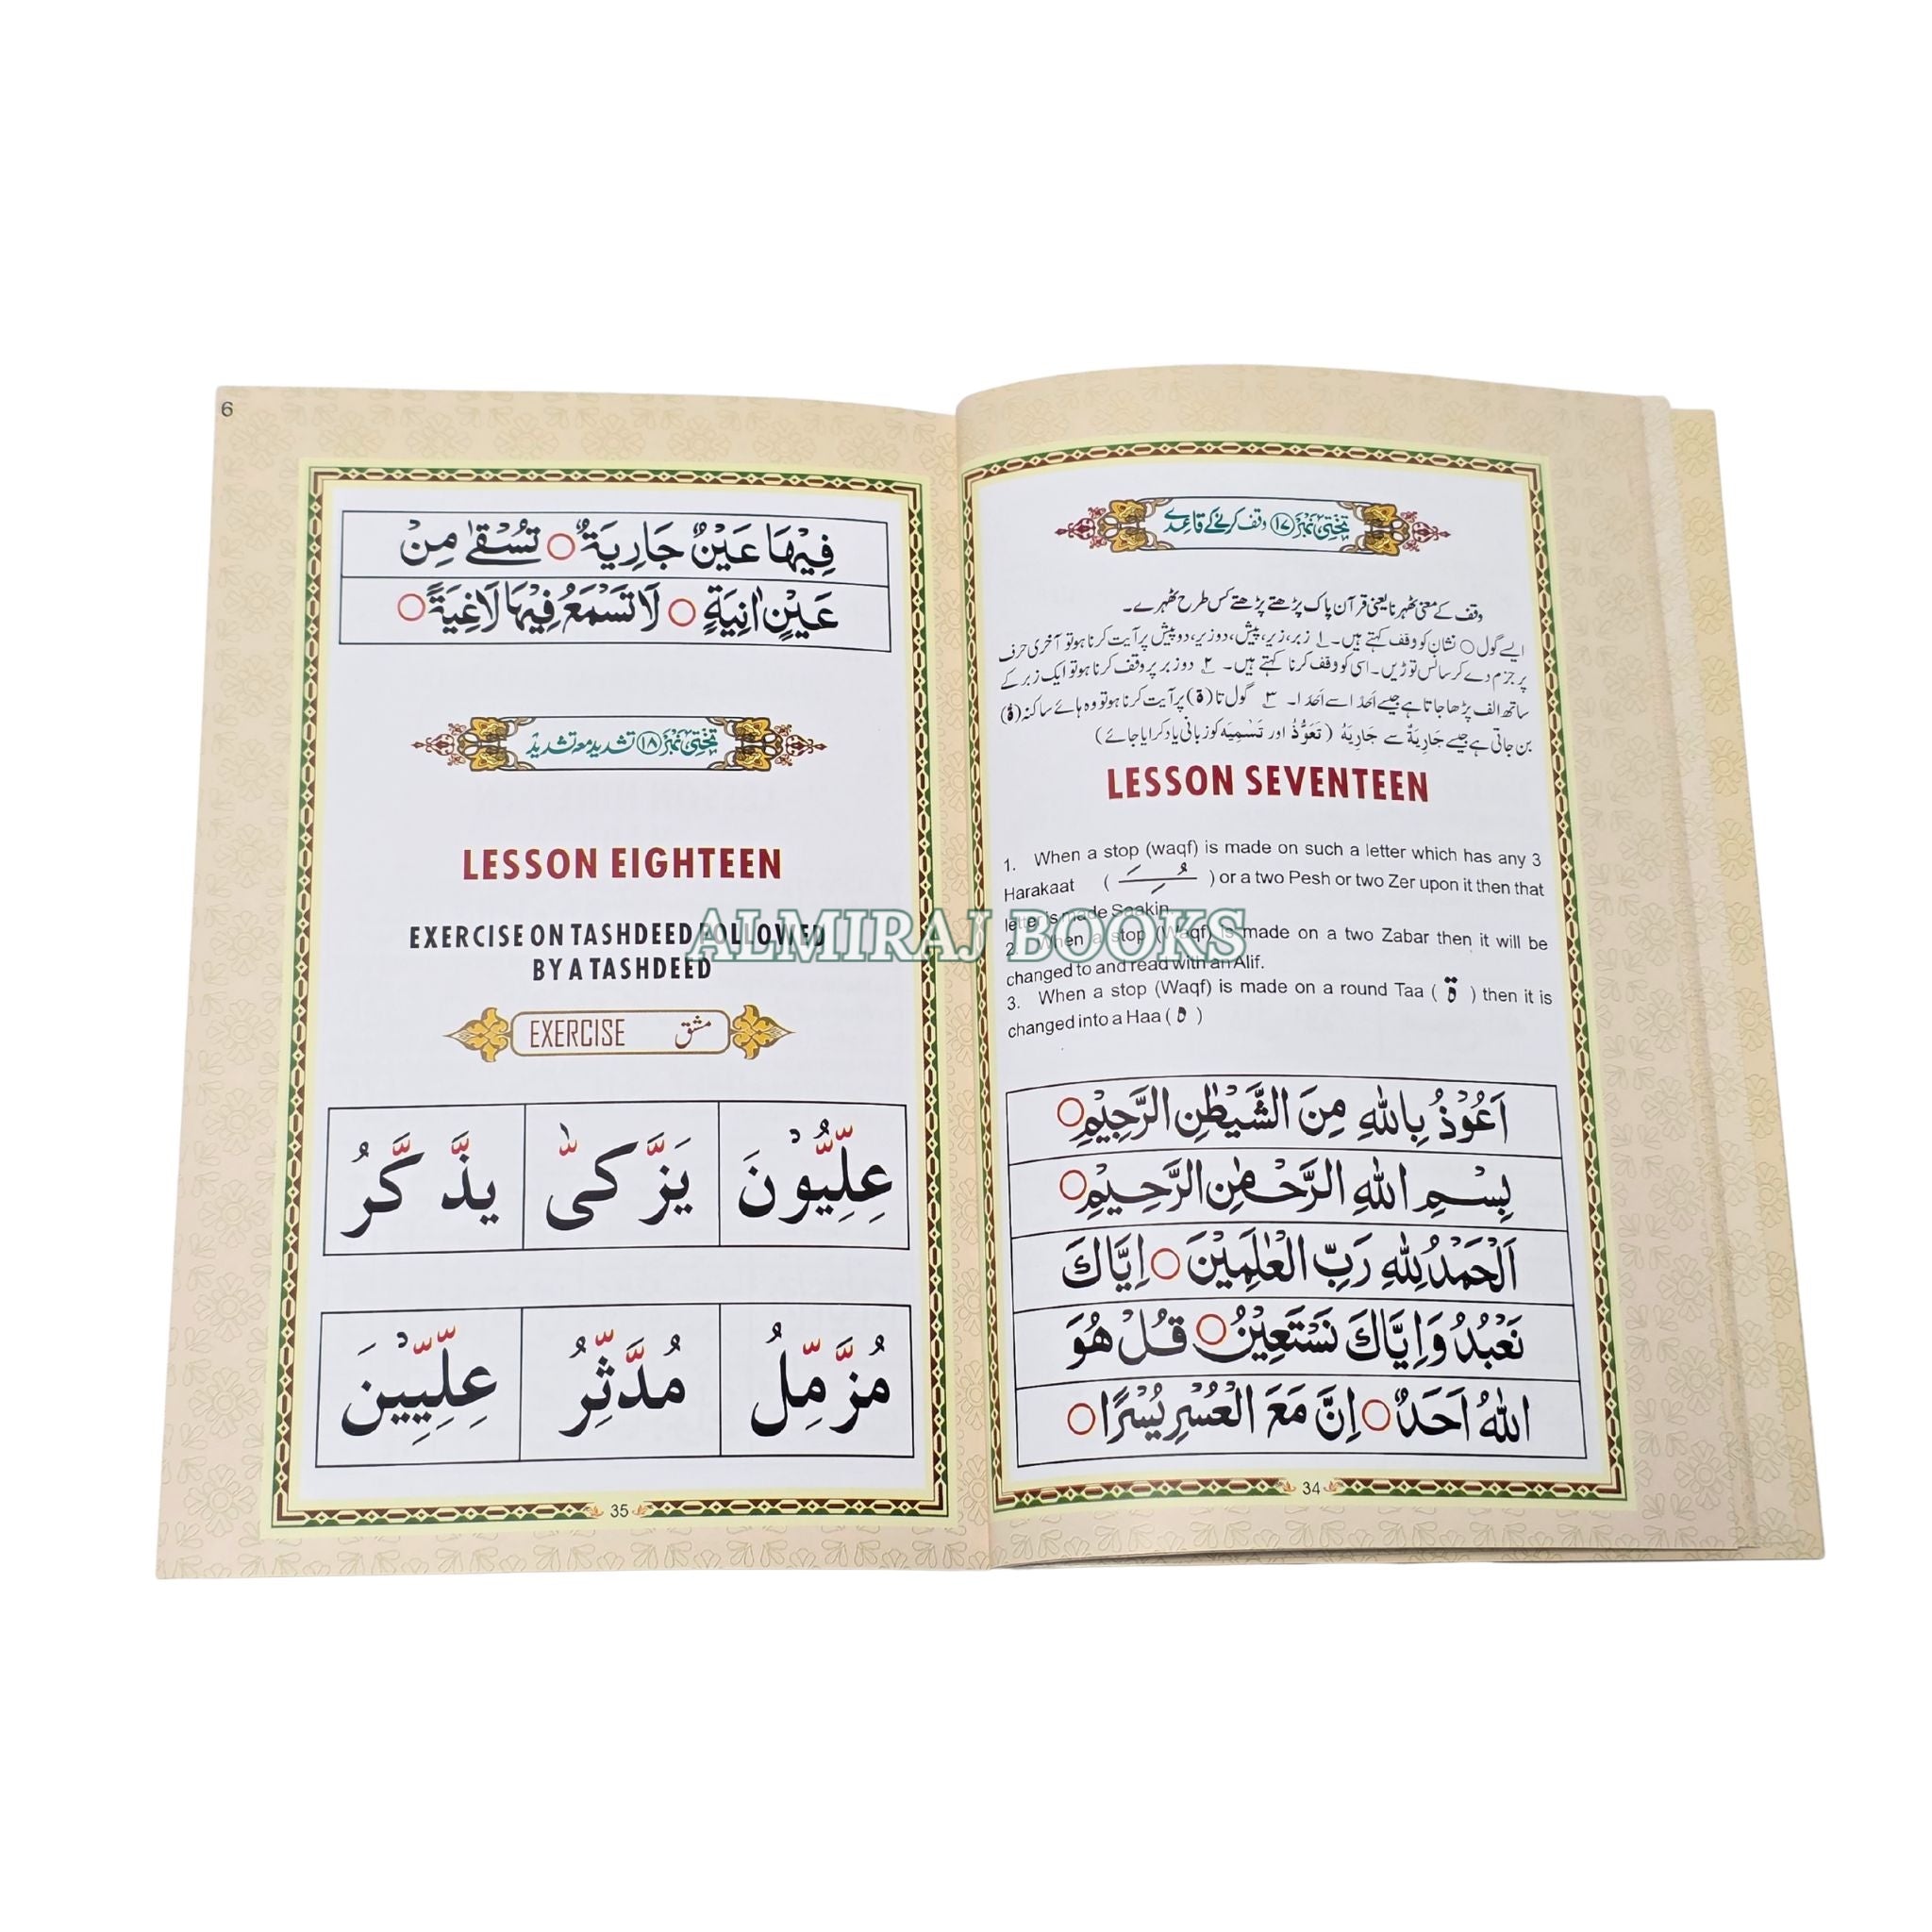 تختی نمبر ۱۷ وقف کرنے کے قاعدے
وقف کے معنی ٹھہرنا یعنی قرآن پاک پڑھتے پڑھتے کس طرح ٹھہرے۔
ایسے گول ○ نشان کو وقف کہتے ہیں۔ ۱ زبر، زیر، پیش، دوزیر، دوپیش پر آیت کرنا ہو تو آخری حرف
پر جزم دے کر سانس توڑیں۔ اسی کو وقف کرنا کہتے ہیں۔ ۲ دوزبر پر وقف کرنا ہو تو ایک زبر کے
ساتھ الف پڑھا جاتا ہے جیسے اَحَدًا سے اَحَدَا۔ ۳ گول تا (ة) پر آیت کرنا ہو تو وہ ہائے ساکنہ (هْ)
بن جاتی ہے جیسے جَارِيَةٌ سے جَارِيَهْ (تَعَوُّذْ اور تَسْمِيَه کو زبانی یاد کرایا جائے)
LESSON SEVENTEEN
1. When a stop (waqf) is made on such a letter which has any 3
Harakaat ( َ ِ ُ ) or a two Pesh or two Zer upon it then that
letter is made Saakin.
2. When a stop (Waqf) is made on a two Zabar then it will be
changed to and read with an Alif.
3. When a stop (Waqf) is made on a round Taa ( ة ) then it is
changed into a Haa ( ه )
اَعُوْذُ بِاللهِ مِنَ الشَّيْطٰنِ الرَّجِيْمِ ○
بِسْمِ اللهِ الرَّحْمٰنِ الرَّحِيْمِ ○
اَلْحَمْدُ لِلّٰهِ رَبِّ الْعٰلَمِيْنَ ○ اِيَّاكَ
نَعْبُدُ وَاِيَّاكَ نَسْتَعِيْنُ ○ قُلْ هُوَ
اللهُ اَحَدٌ ○ اِنَّ مَعَ الْعُسْرِ يُسْرًا ○
34
6
فِيْهَا عَيْنٌ جَارِيَةٌ ○ تُسْقٰى مِنْ
عَيْنٍ اٰنِيَةٍ ○ لَا تَسْمَعُ فِيْهَا لَاغِيَةً ○
تختی نمبر ۱۸ تشدید مع تشدید
LESSON EIGHTEEN
EXERCISE ON TASHDEED FOLLOWED
BY A TASHDEED
EXERCISE مشق
عِلِّيُّوْنَ يَزَّكّٰى يَذَّكَّرُ
مُزَّمِّلُ مُدَّثِّرُ عِلِّيِّيْنَ
35
ALMIRAJ BOOKS